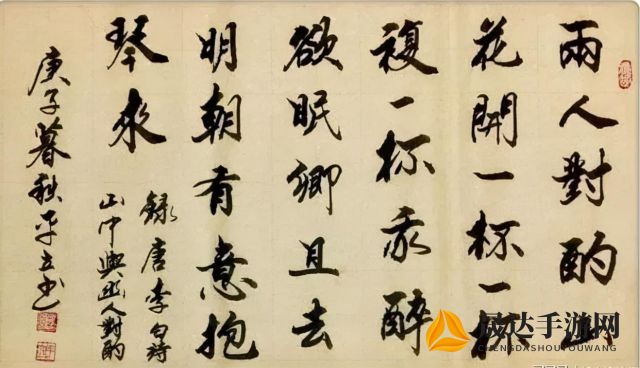 兩人對酌山
花開一杯一杯
複一杯我醉
欲眠卿且去
明朝有意抱
琴來
錄唐李白詩
山中與幽人對酌
庚子暮秋平立书
晟达手游网
CHENGDASHOUYOUWANG